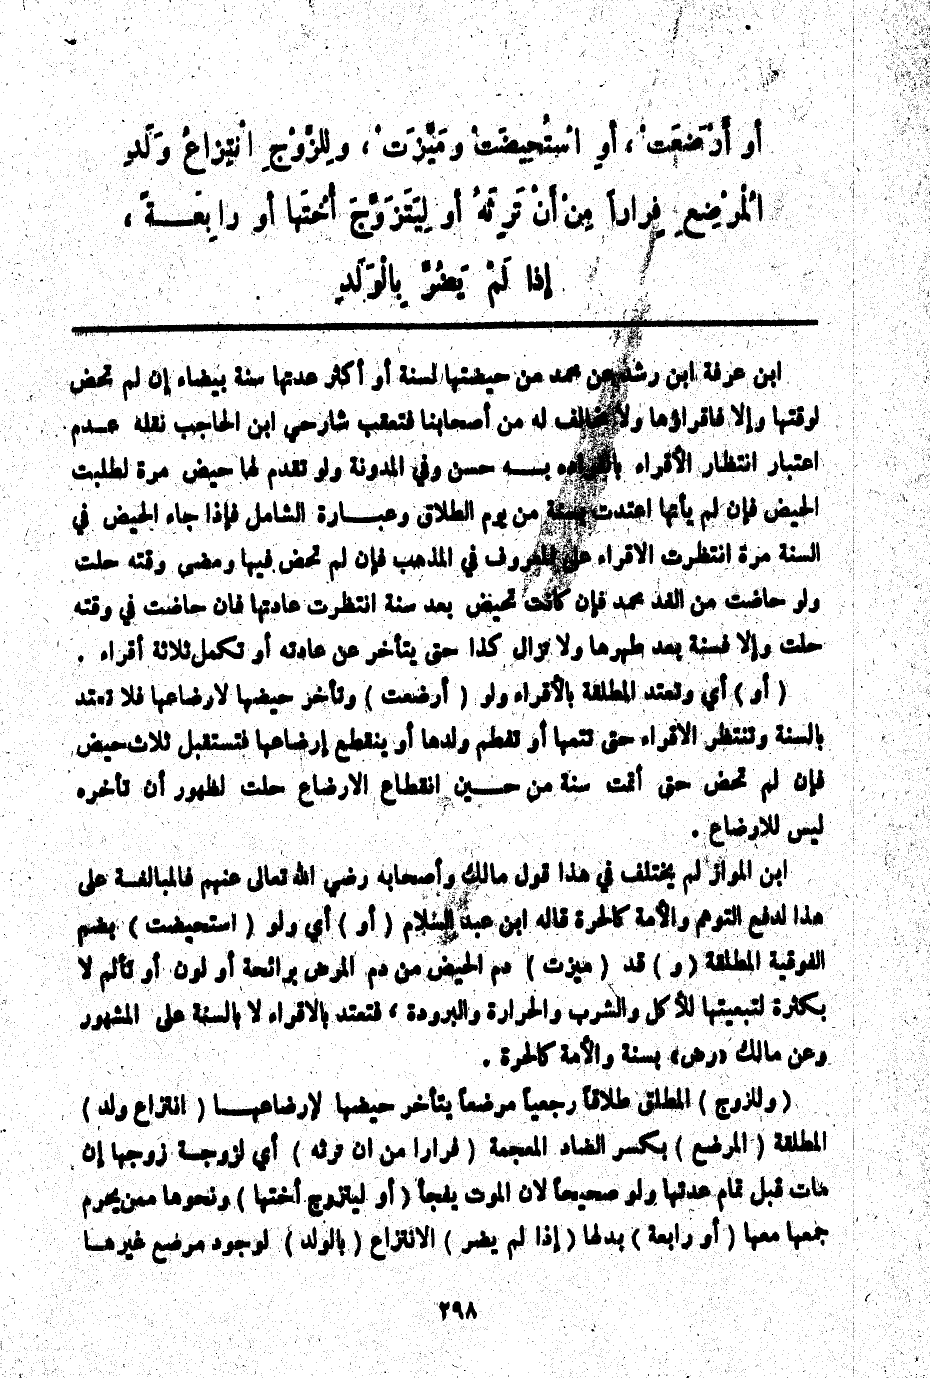 أَو أَرْضَعَتْ، أَوِ اسْتُحِيضَتْ وَمَيَّزَتْ، وَلِلزَّوْجِ انْتِزَاعُ وَلَدِ
الْمُرْضِعِ فِراراً مِنْ أَنْ تَرِثَهُ أَو لِيَتَزَوَّجَ أُخْتَها أَو رابِعَـــةً ،
إِذا لَمْ يَضُرَّ بِالْوَلَدِ
ابن عرفة ابن رشد عن محمد من حيضتها لسنة أو أكثر عدتها سنة بيضاء إن لم تحض
لوقتها وإلا فاقراؤها ولا مخالف له من أصحابنا فتعقب شارحي ابن الحاجب نقله عـدم
اعتبار انتظار الأقراء بانفراده بـــه حسن وفي المدونة ولو تقدم لها حيض مرة لطلبت
الحيض فإن لم يأتها اعتدت بسنة من يوم الطلاق وعبـــارة الشامل فإذا جاء الحيض في
السنة مرة انتظرت الاقراء على المعروف في المذهب فإن لم تحض فيها ومضى وقته حلت
ولو حاضت من الغد محمد فإن كانت تحيض بعد سنة انتظرت عادتها فان حاضت في وقته
حلت وإلا فسنة بعد طهرها ولا تزال كذا حتى يتأخر عن عادته أو تكمل ثلاثة أقراء .
( أو ) أي وتعتد المطلقة بالأقراء ولو ( أرضعت ) وتأخر حيضها لارضاعها فلا تعتد
بالسنة وتنتظر الاقراء حتى تتمها أو تفطم ولدها أو ينقطع إرضاعها فتستقبل ثلاث حيض
فإن لم تحض حتى أتمت سنة من حـــين انقطاع الارضاع حلت لظهور أن تأخره
ليس للارضاع .
ابن المواز لم يختلف في هذا قول مالك وأصحابه رضي الله تعالى عنهم فالمبالغـة على
هذا لدفع التوهم والأمة كالحرة قاله ابن عبد السلام ( أو ) أي ولو ( استحيضت ) بضم
الفوقية المطلقة ( و ) قد ( ميزت ) دم الحيض من دم المرض برائحة أو لون أو تألم لا
بكثرة لتبعيتها للأكل والشرب والحرارة والبرودة ، فتعتد بالاقراء لا بالسنة على المشهور
وعن مالك «رض» بسنة والأمة كالحرة .
( وللزوج ) المطلق طلاقاً رجعياً مرضعاً يتأخر حيضها لإرضاعهـــا ( انتزاع ولد )
المطلقة ( المرضع ) بكسر الضاد المعجمة ( فرارا من ان ترثه ) أي لزوجـة زوجها إن
مات قبل تمام عدتها ولو صحيحاً لان الموت يفجأ ( أو ليتزوج أختها ) ونحوها ممن يحرم
جمعها معها ( أو رابعة ) بدلها ( إذا لم يضر ) الانتزاع ( بالولد ) لوجود مرضع غيرهـا
٢٩٨